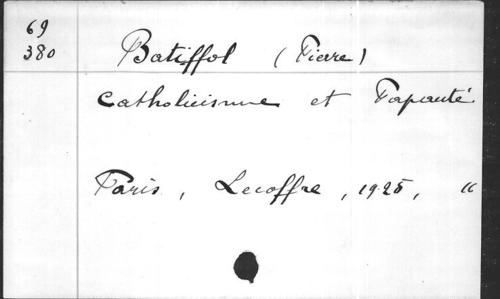 69
380
Batiffol (Pierre)
Catholicisme et Papauté
Paris, Lecoffre, 1925, "